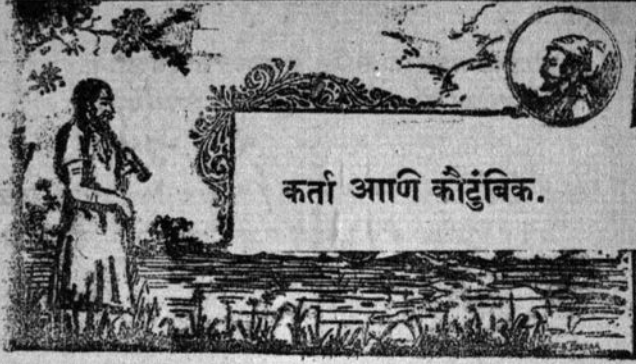 कर्ता आाणि कौटुंबिक.